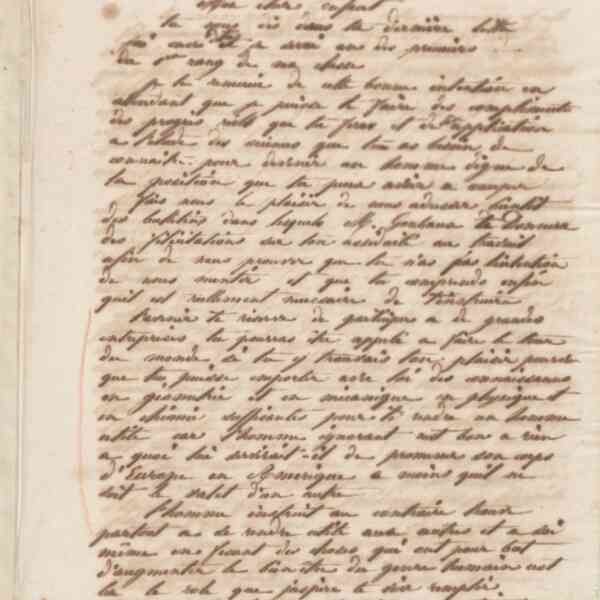 cher enfant
tu nous dis dans ta dernière lettre
je serai un des premiers
rang de ma classe
je te remercie de cette bonne intention en
attendant que je puisse te faire des compliments
des progrès réels que tu feras et de l'application
a l'etude des sciences que tu as besoin de
connaitre pour devenir un homme digne de
la position que tu peux avoir a occuper
fais nous le plaisir de nous adresser bientôt
des bulletins dans lesquels M. te donnera
des félicitations sur ton assiduité au travail
afin de nous prouver que tu n'as pas l'intention
de nous mentir et que tu comprends enfin
quil est réellement necessaire de t'instruire
l'avenir te réserve de participer a de grandes
entreprises tu pourras être appelé a faire le tour
du monde si tu y trouvais ton plaisir pourvu
que tu puisse emporter avec toi des connaissances
en géométrie et en mécanique en physique et
en chimie suffisantes pour te rendre un homme
utile car l'homme ignorant n'est bon a rien
a quoi lui servirait-il de promener son corps
d'Europe en Amerique a moins quil ne
soit le valet d'un autre
l'homme instruit au contraire trouve
partout a se rendre utile aux autres et a soi
même en faisant des choses qui ont pour but
d'augmenter le bien être du genre humain est
la le role que j'espère te voir remplir.